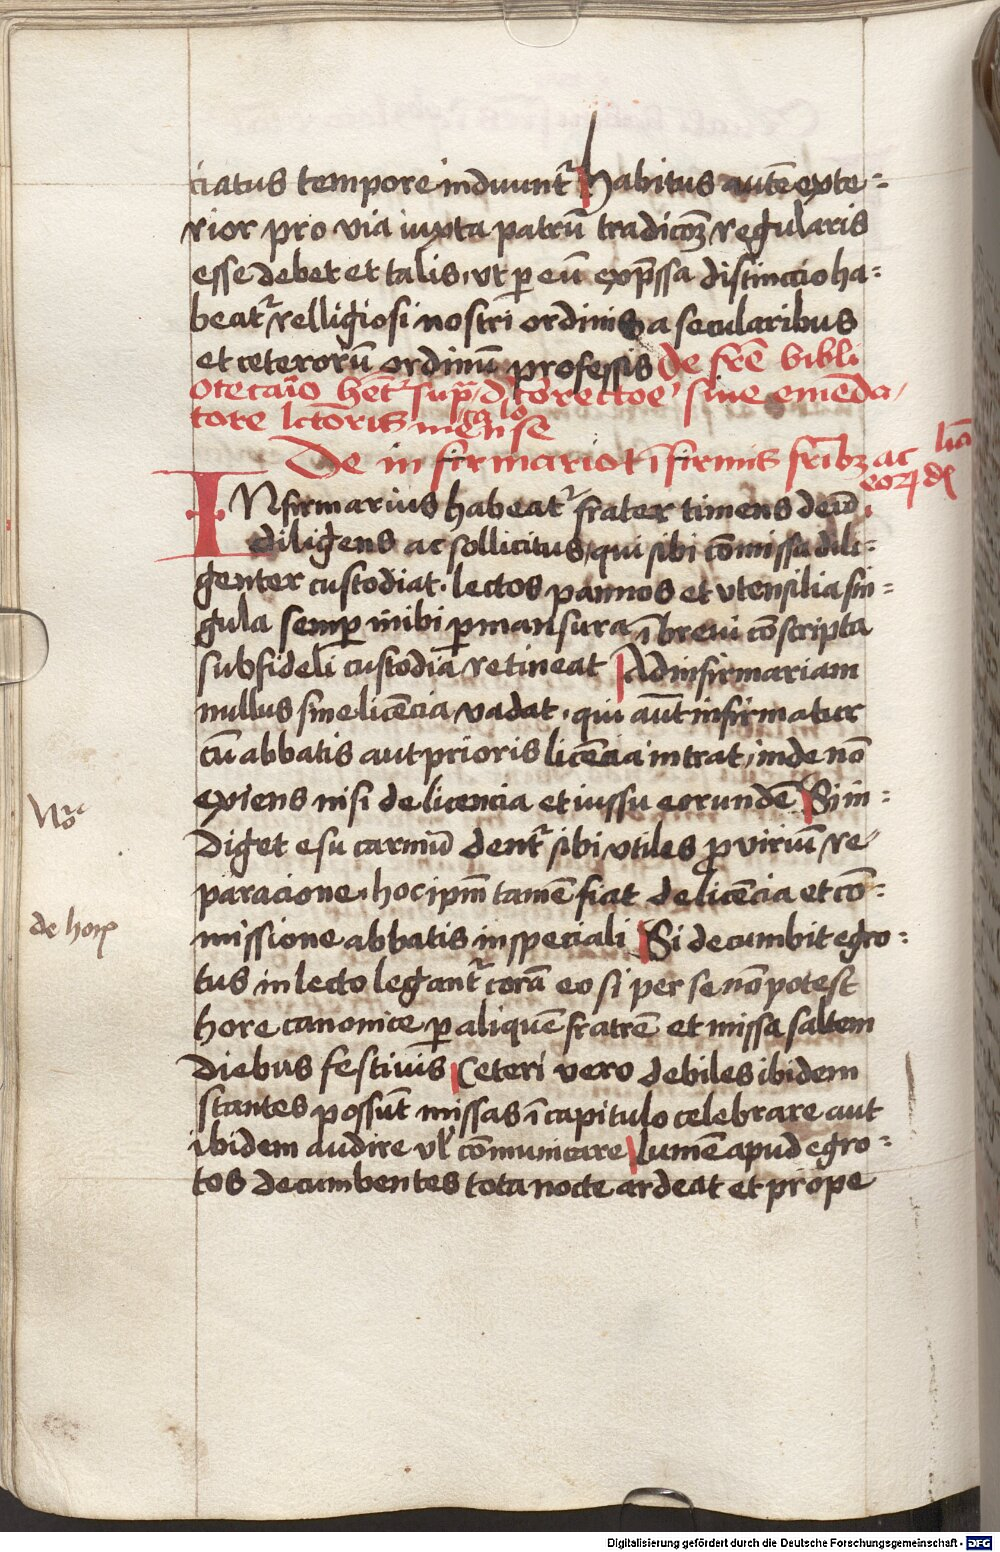 ciatus tempore induunt᷑ Habitus autē exte-
rior pro via iuxta patrū tradicōꝫ regularis
esse debet et talis, vt ꝑ eū exp̄ssa distinccio ha-
beat᷑ relligiosi nostri ordinis a secularibus
et ceterorū ordinū professis De fr̄e bibli
otecario het᷑ supͣ d correctoe siue emēda
tore lc̄toris mense ca lo
De infirmario et īfirmis frībꝫ ac
eoꝝ licā dē
INfirmarius habeat᷑ frater timens deū
diligens ac sollicitus, qui sibi cōmissa dili-
genter custodiat. lectos pannos et vtensilia sin-
gula semꝑ inibi ꝑmansura ī breui cōscripta
sub fideli custodia retineat Ad infirmariam
nullus sine licēcia vadat. qui aūt infirmatur
cū abbatis aut prioris licēcia intrat, inde nō
exiens nisi de licencia et iussu eorundē Si in-
diget esu carniū dent᷑ sibi vtiles ꝓ viriū re-
paracione. hoc ipm̄ tamē fiat de licēcia et cō-
missione abbatis in speciali Si decumbit egro-
tus in lecto legant᷑ corā eo si per se nō potest
hore canonice ꝑ aliquē fratrē et missa saltem
diebus festiuis Ceteri vero debiles ibidem
stantes possūt missas ī capitulo celebrare aut
ibidem audire vl' cōmunicare lumē apud egro-
tos decumbentes tota nocte ardeat et prope
de horꝭ
Digitalisierung gefördert durch die Deutsche Forschungsgemeinschaft - DFG